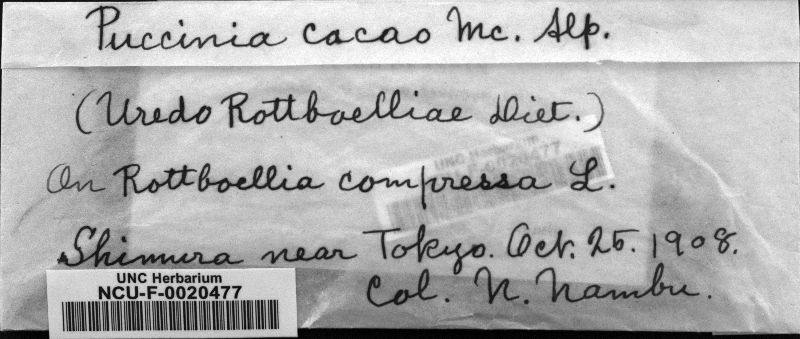 Puccinia cacao Mc. Alp.
(Uredo Rottboelliae Diet.)
On Rottboellia compressa L.
Shimura near Tokyo. Oct. 25. 1908.
Col. N. Nambu.
UNC Herbarium
NCU-F-0020477
UNC Herbarium
0020477